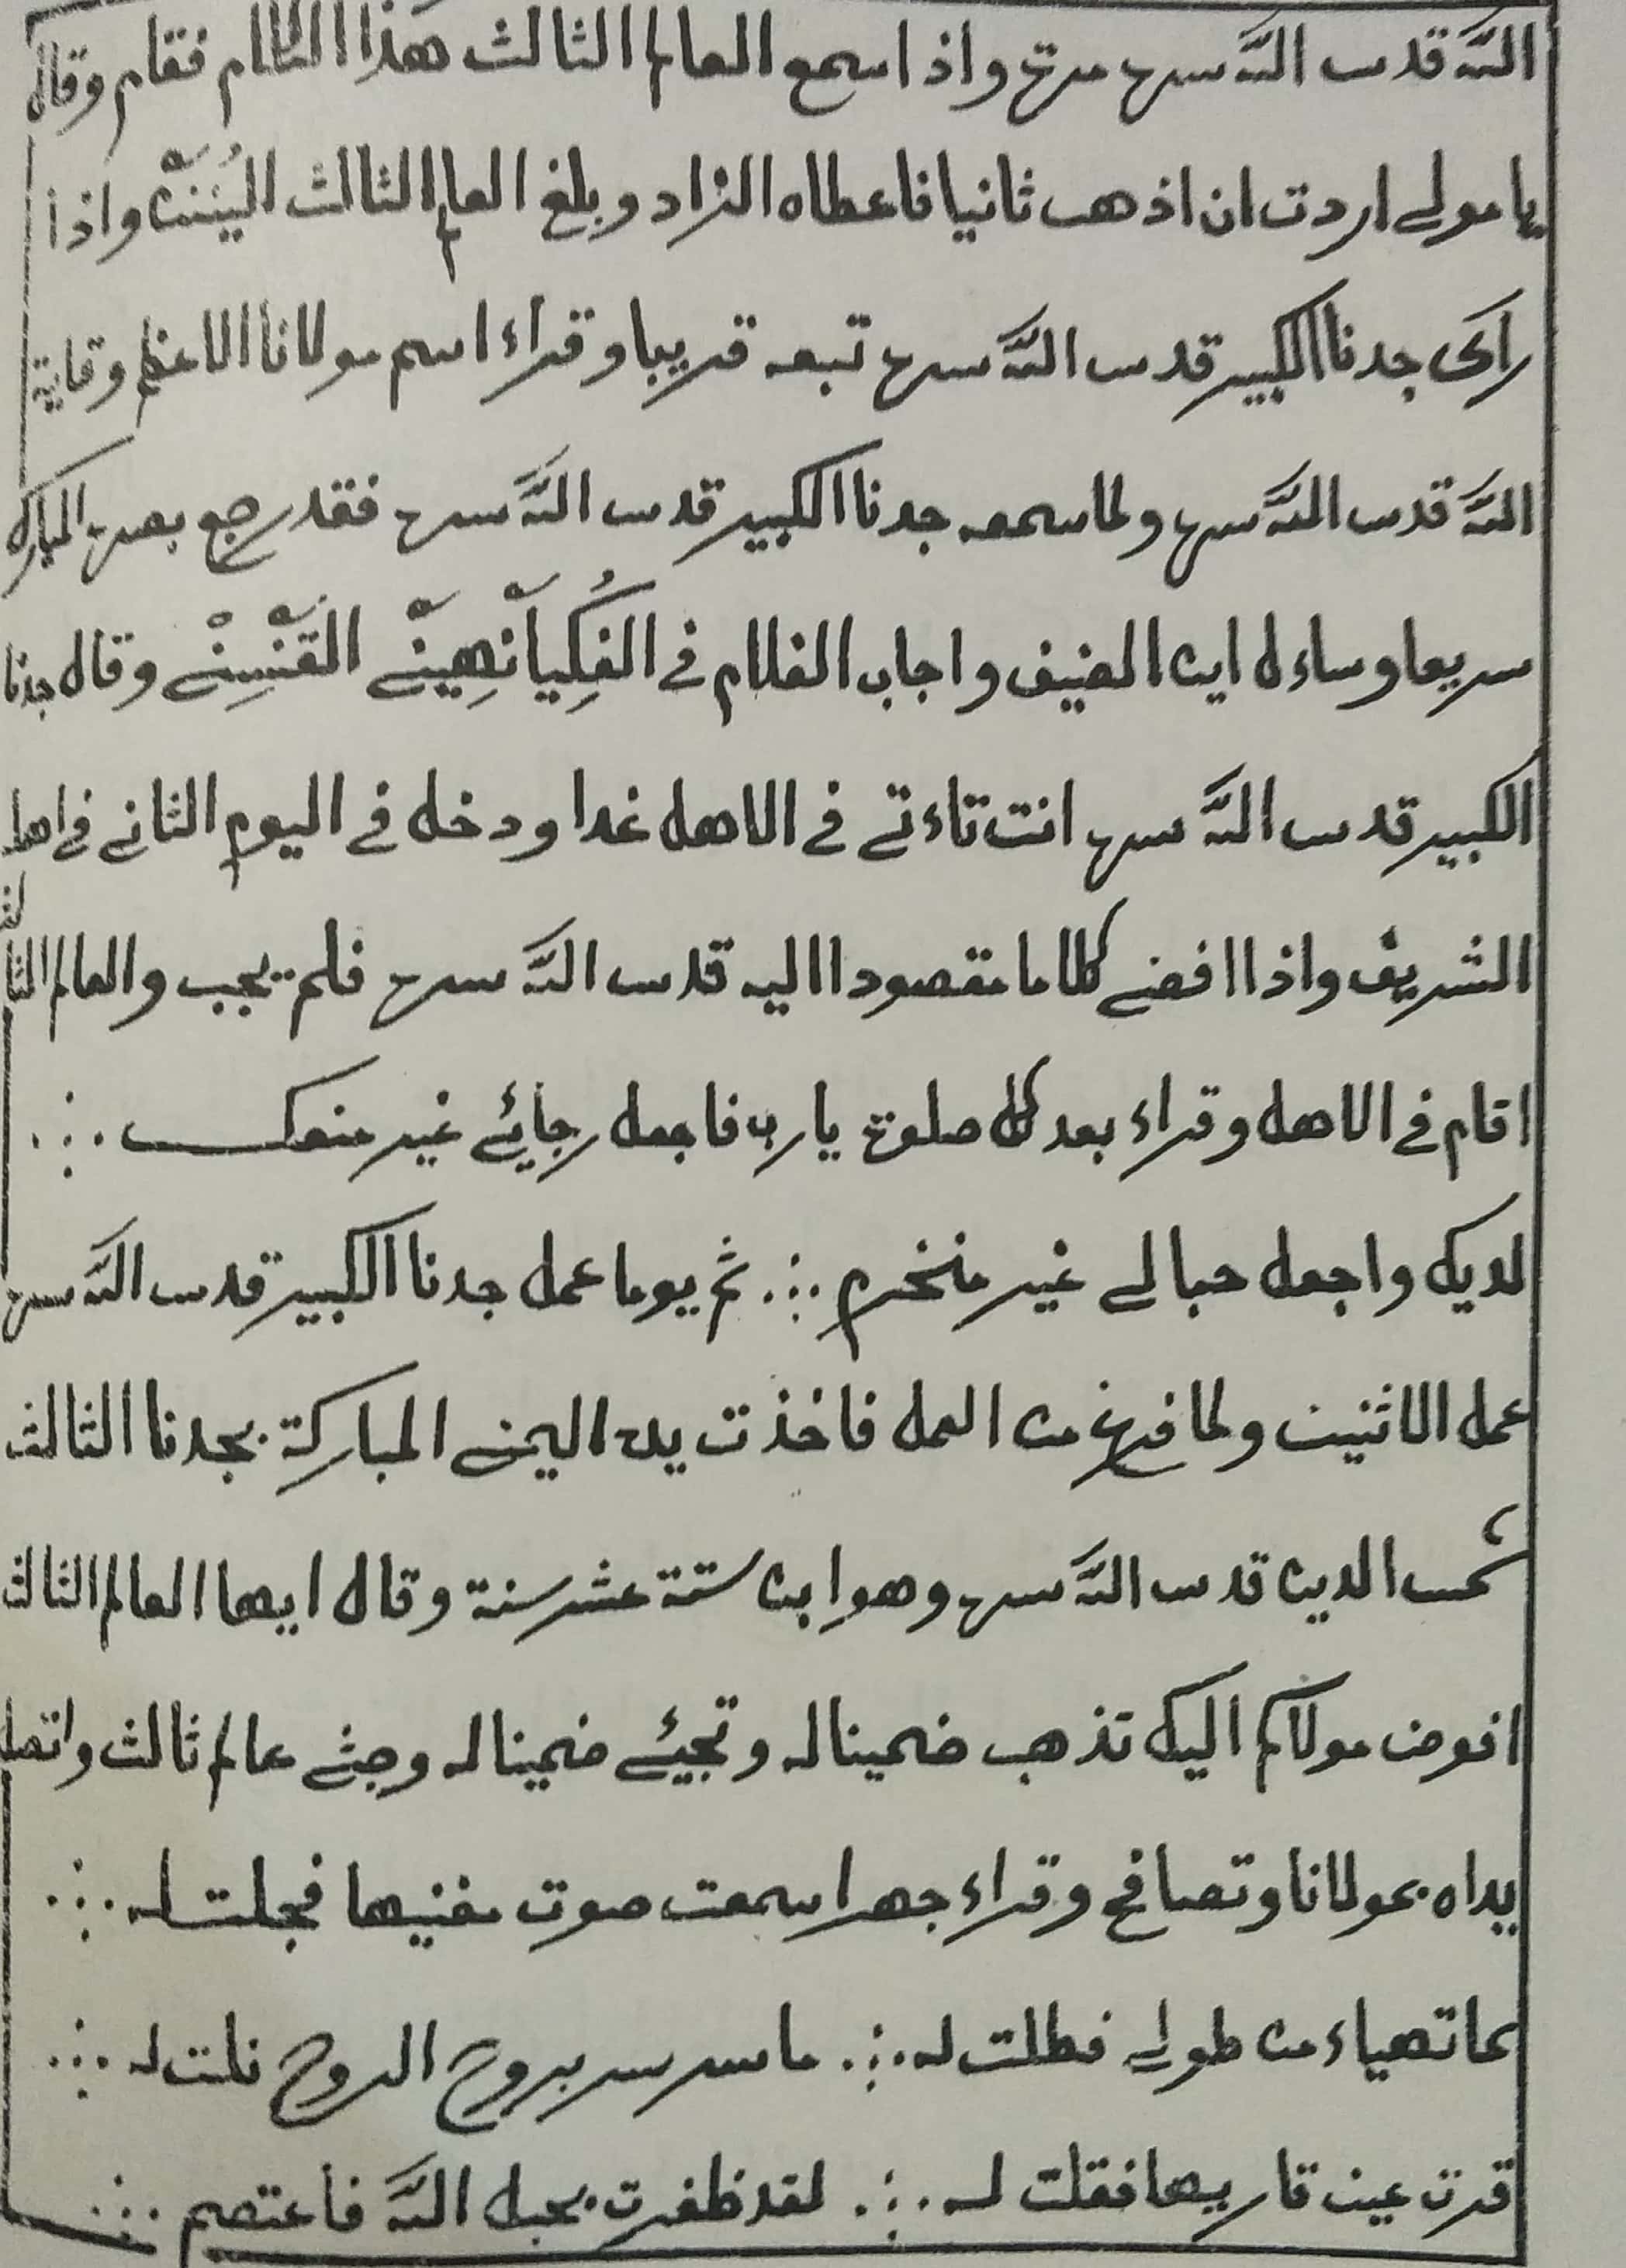 اللّٰه قدس اللّٰه سره مرة واذا سمع العالم الثالث هذا الكلام فقام وقال
يا مولے اردت ان اذهب ثانيا فاعطاه الزاد وبلغ العالم الثالث واذا
راى جدنا الكبير قدس اللّٰه سره تبعه قريبا وقراء اسم مولانا الاعظم وقاية
اللّٰه قدس اللّٰه سره ولما سمعه جدنا الكبير قدس اللّٰه سره فقد رجع بصره المبارك
سريعا وساءل اين الضيف واجاب الغلام فے وقال جدنا
الكبير قدس اللّٰه سره انت تاءتے فے الاهل غدا ودخل فے اليوم الثانے فے اهل
الشريف واذا افضے كلاما مقصودا اليه قدس اللّٰه سره فلم يجب والعالم الثالث
اقام فے الاهل وقراء بعد كل صلوة يارب فاجعل رجائے غير منعكس ∴
لديك واجعل حبالے غير منخرم ∴ ثم يوما عمل جدنا الكبير قدس اللّٰه سره
عمل الاثنين ولما فرغ من العمل فاخذت يده اليمنے المباركة بجدنا الثالث
شمس الدين قدس اللّٰه سره وهو ابن ستة عشر سنة وقال ايها العالم الثالث
افوض مولاكم اليك تذهب ضمينا له وتجيئے ضمينا له وجئے عالم ثالث واتصل
يداه بمولانا وتصافح وقراء جهرا سمعت صوت مغنيها فجلت له ∴
بما تهياء من طولے فطلت له ∴ ما سر سر بروح الروح نلت له ∴
قرت عين قاريها فقلت له ∴ لقد ظفرت بحبل اللّٰه فأعتصم ∴